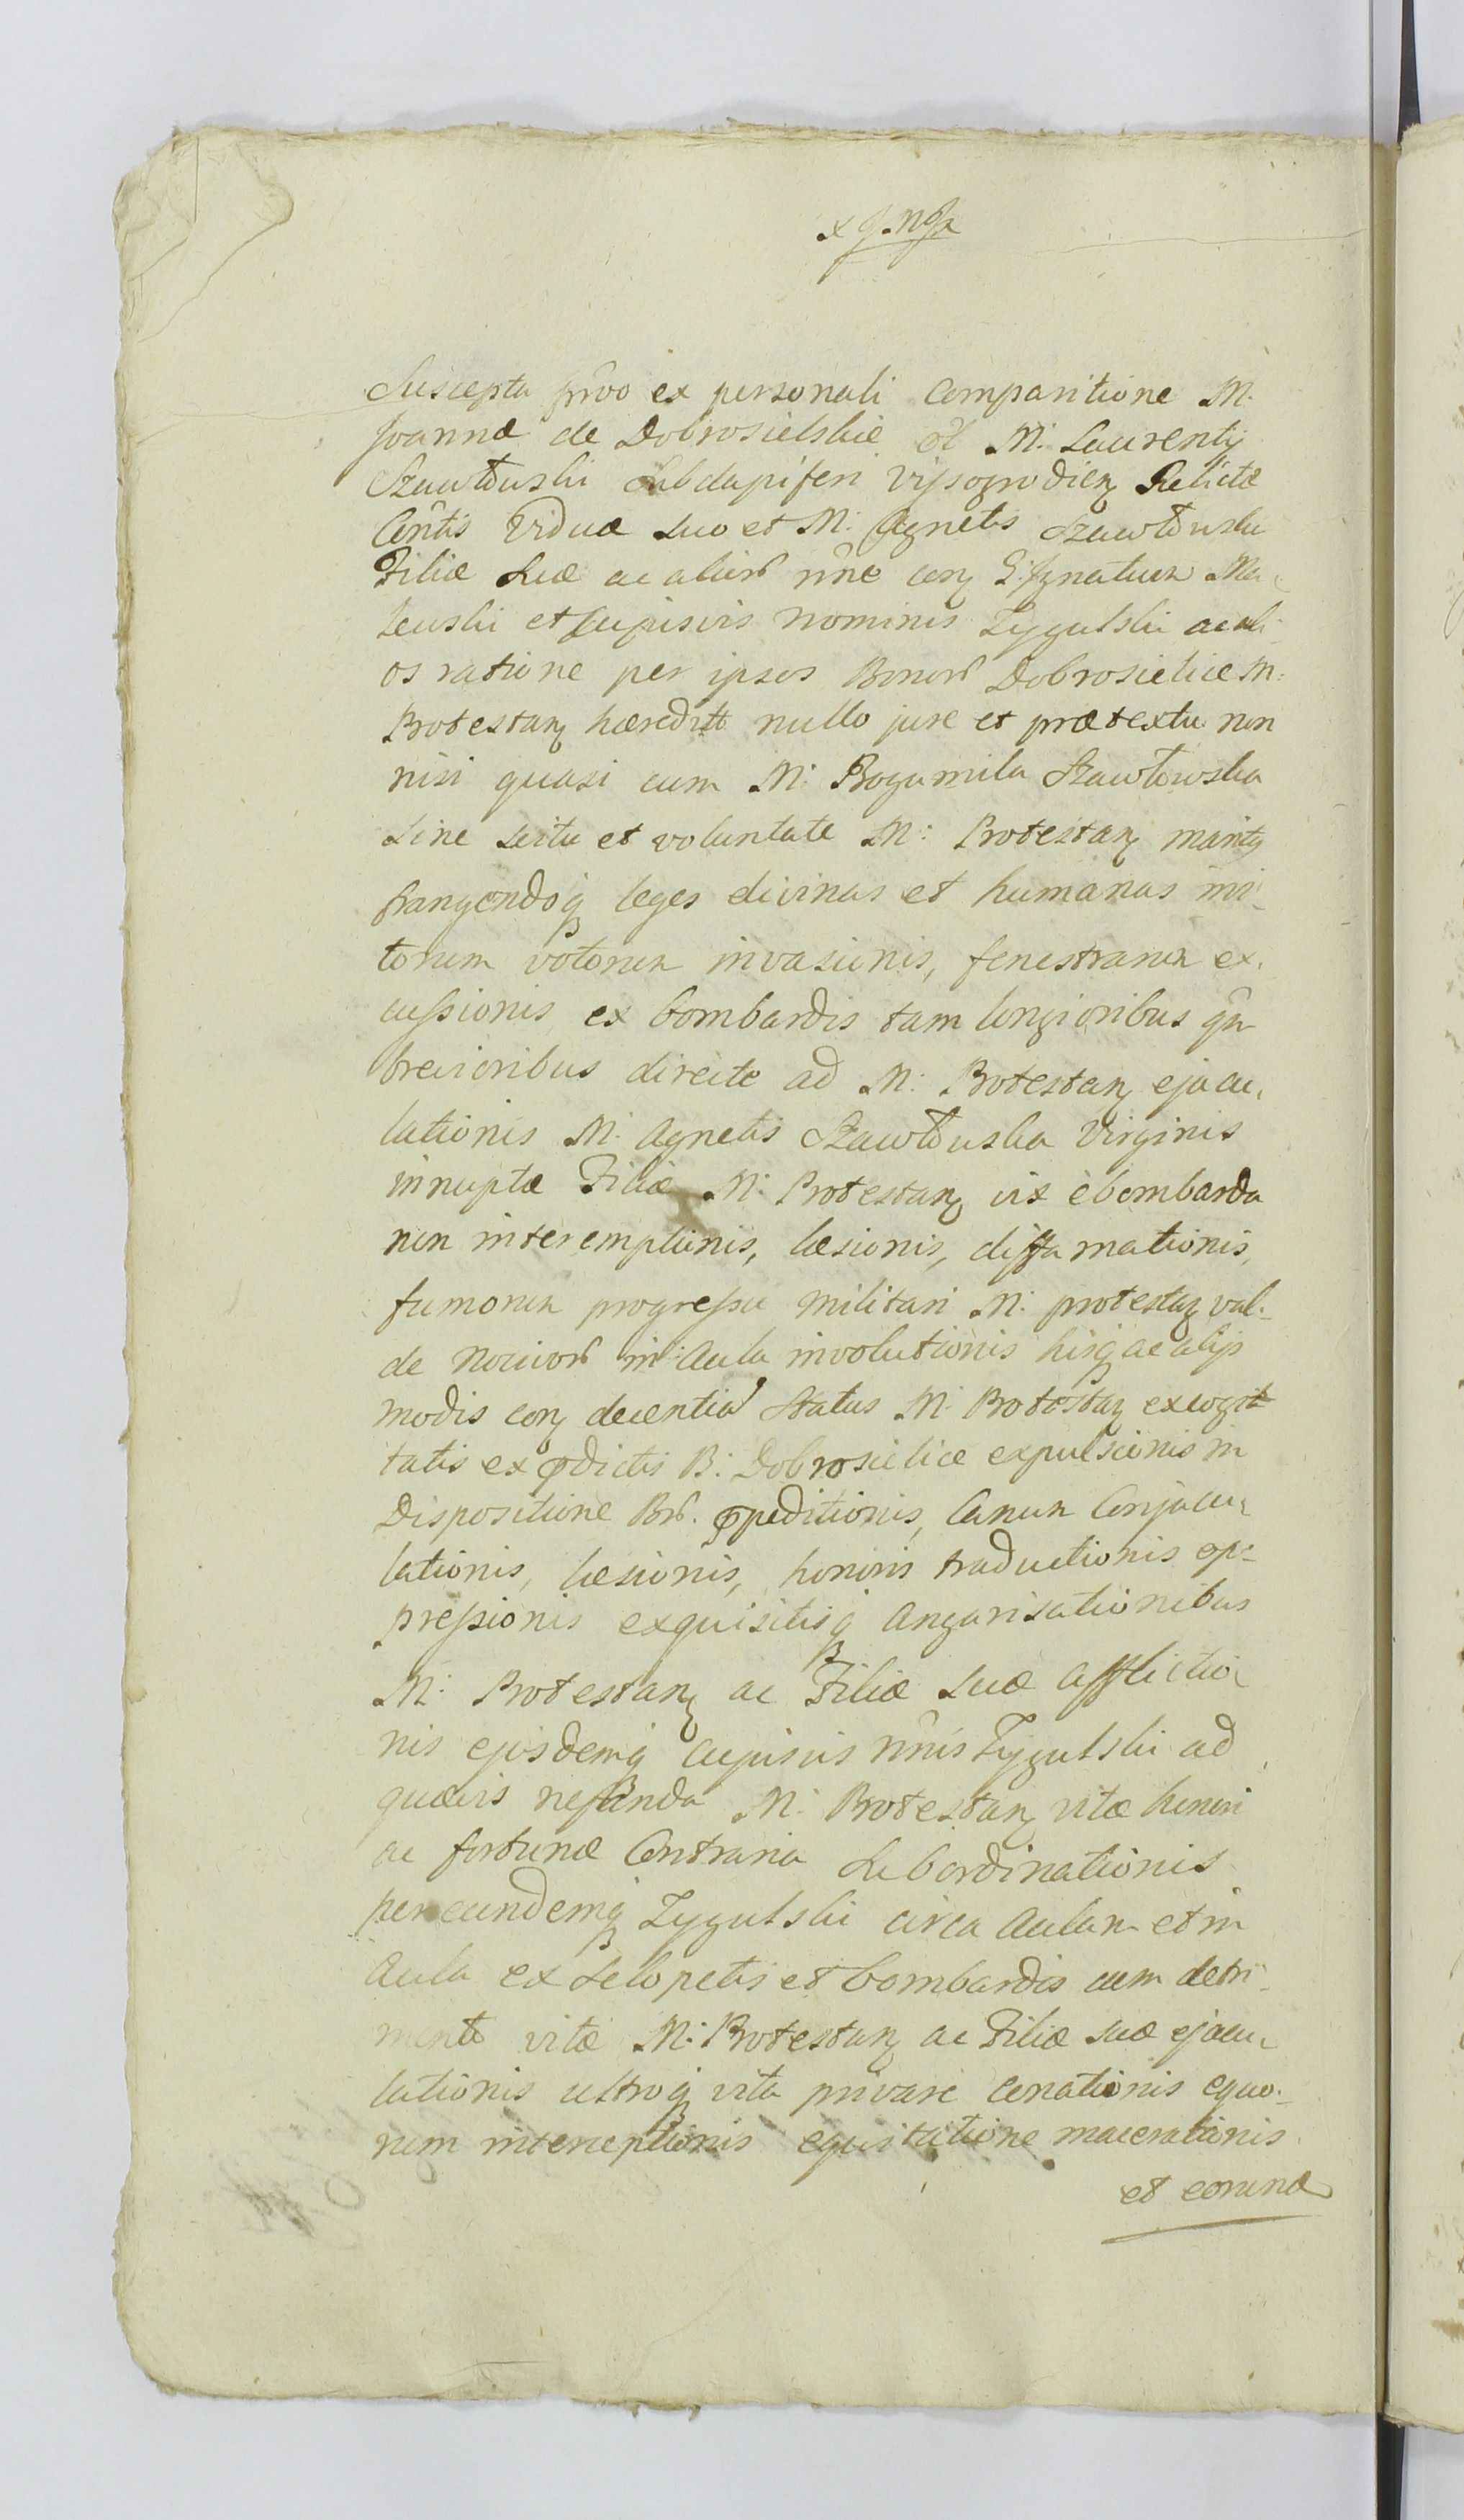 Suscepta ex personali Comparitione M.
Joannæ de Dobrosielskie M: Laurentij
Szawłowski Subdapiferi Vissogrodien Relictæ
Viduæ suo et M: Agnetis Szawłowski
Filiæ suæ ac alior nne con G: Ignatium Ma-
kewski et cujusvis nominis Zygulski ac ali-
os ratione per ipsos Bonor Dobrosielice M:
Protestan hæredit nullo jure et prætextu non
nisi quasi cum M: Bogumila Szawłowska
sine scitu et voluntate M: Protestan
frangendoq leges divinas et humanas ini-
torum votorum invasionis, fenestrarum ex-
cussionis ex bombardis tam longioribus qm
brevioribus directe ad M: Protestan ejacu-
lationis M. Agnetis Szawłowska Virginis
innuptæ Filiæ M: Protestan vix è bombarda
non interemptionis, læsionis, diffamationis,
fumorum progressu militari M: protestan val-
de nocivor in Aula involutionis hisq ac alijs
modis con decentia Status M: Protestan excogi-
tatis ex pdictis B: Dobrosielice expulsionis in
Dispositione Br. ppeditionis, Canum Conjacu-
lationis, læsionis, honoris traductionis op-
pressionis exquisitisq Angarisationibus
M: Protestan ac Filiæ suæ afflictio-
nis ejusdemq cujusvis nnis Zygulski ad
quævis nefanda M: Protestan vitæ honori
ac fortunæ Contraria subordinationis
per eundemq Zygulski circa Aulam et in
Aula ex sclopetis et bombardis cum detri-
mento vitæ M: Protestan ac Filiæ suæ ejacu-
lationis ultroq vita privare conationis equo-
rum interceptionis equitatione macerationis
et eorund